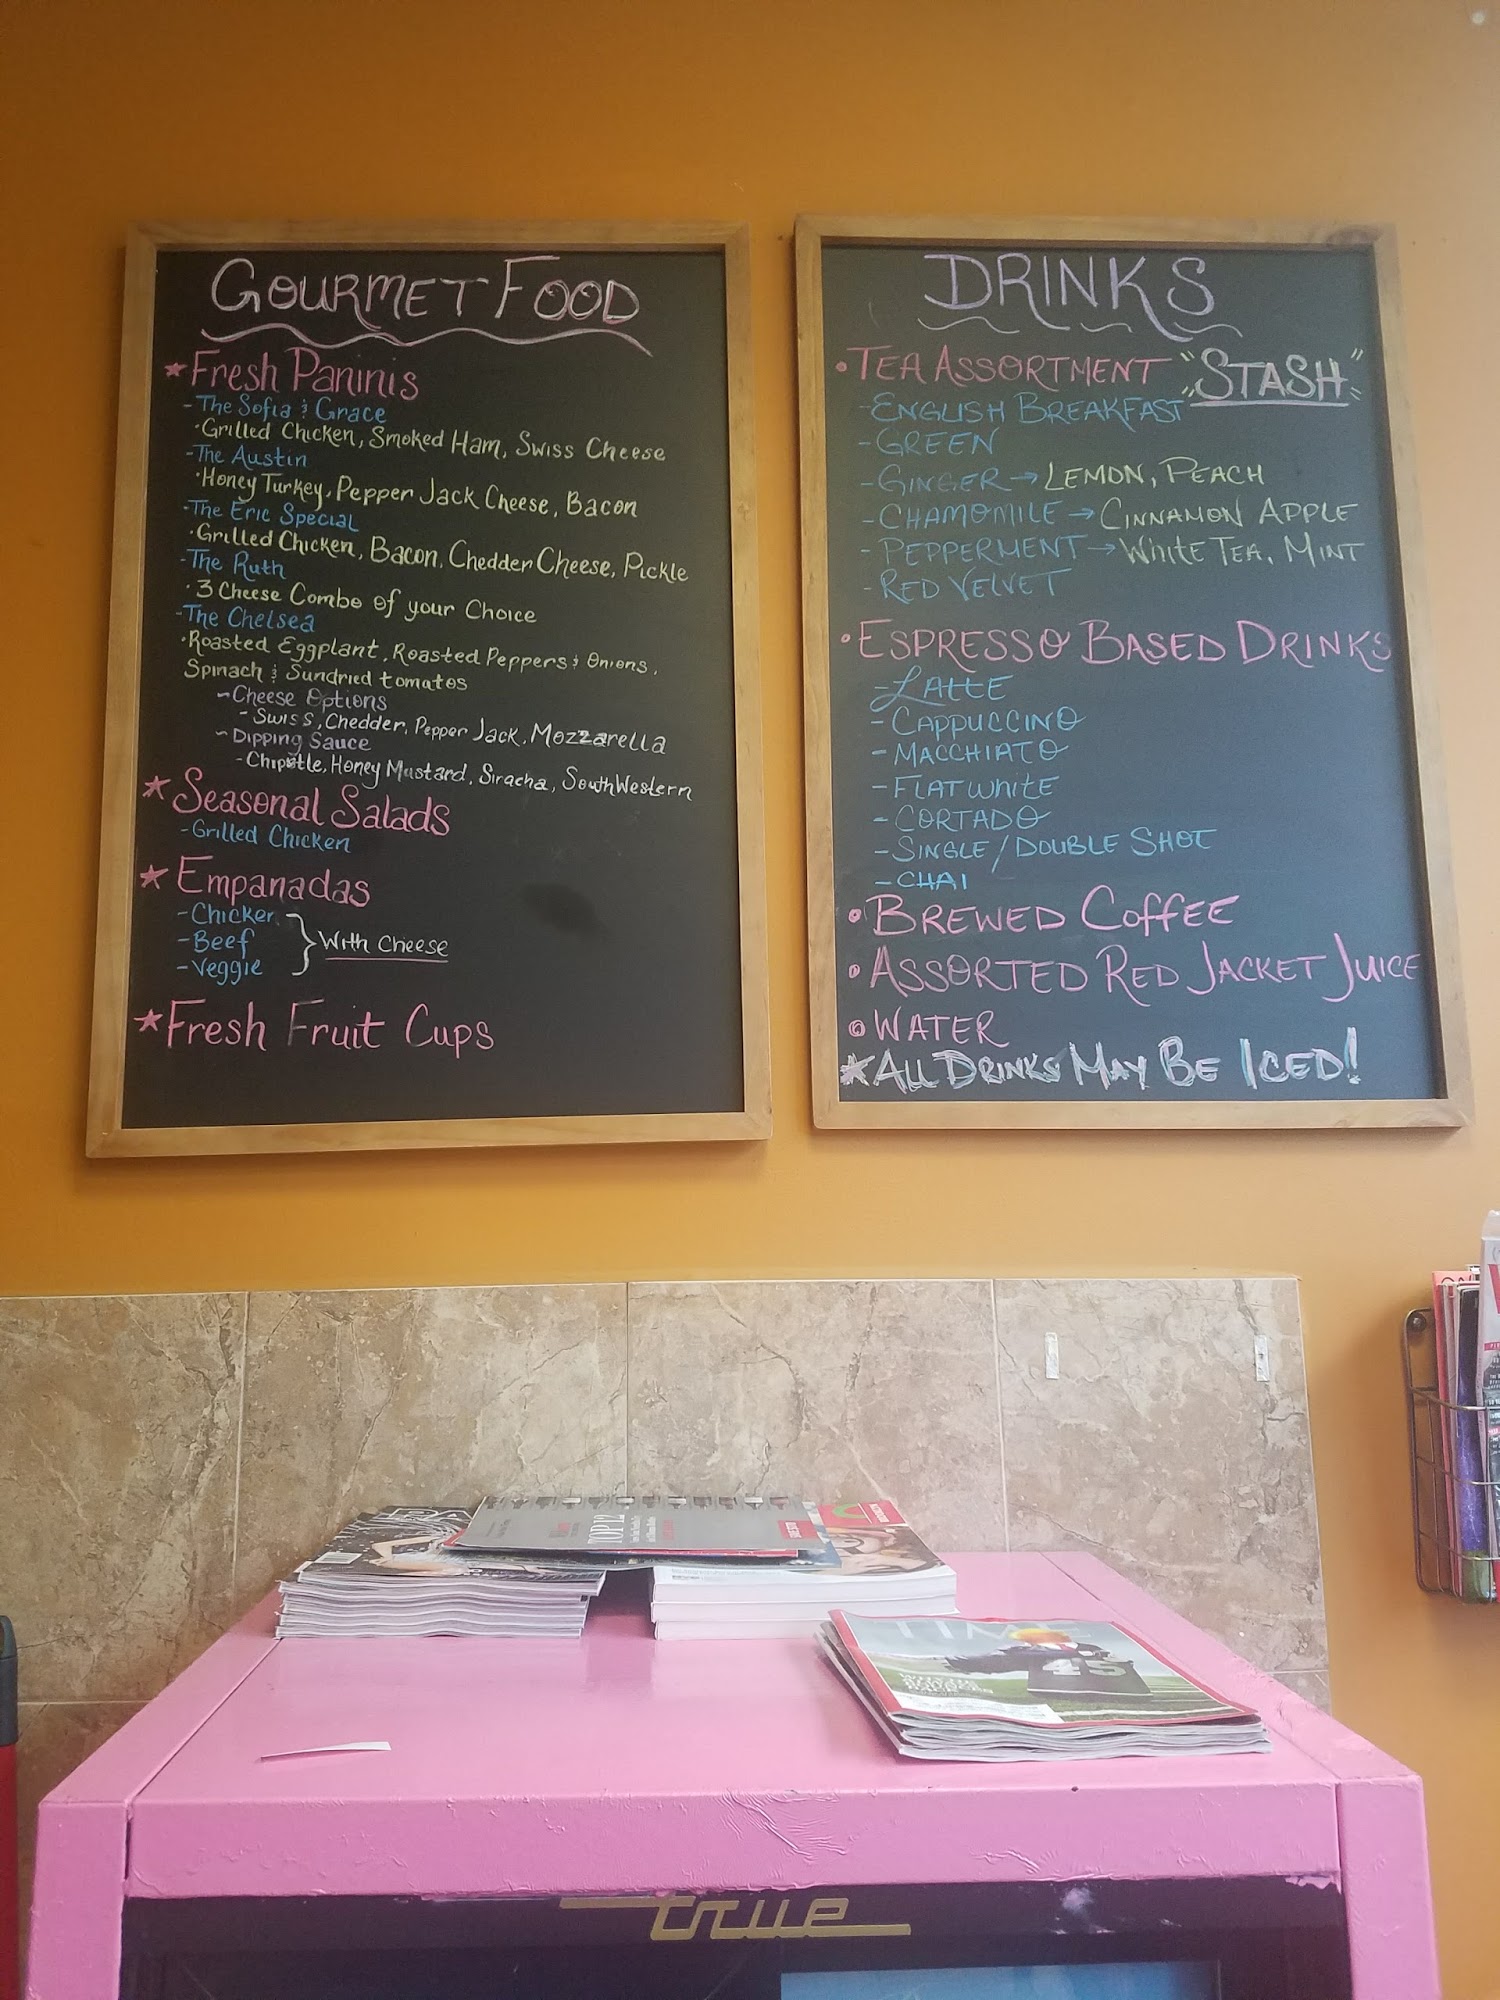 GOURMET FOOD
★ Fresh Paninis
- The Sofia & Grace
• Grilled Chicken, Smoked Ham, Swiss Cheese
- The Austin
• Honey Turkey, Pepper Jack Cheese, Bacon
- The Eric Special
• Grilled Chicken, Bacon, Chedder Cheese, Pickle
- The Ruth
• 3 Cheese Combo of your Choice
- The Chelsea
• Roasted Eggplant, Roasted Peppers & Onions,
Spinach & Sundried tomatos
~ Cheese Options
- Swiss, Chedder, Pepper Jack, Mozzarella
~ Dipping Sauce
- Chipotle, Honey Mustard, Siracha, SouthWestern
★ Seasonal Salads
- Grilled Chicken
★ Empanadas
- Chicken
- Beef
- Veggie
} With Cheese
★ Fresh Fruit Cups
DRINKS
• TEA ASSORTMENT "STASH"
- ENGLISH BREAKFAST
- GREEN
- GINGER → LEMON, PEACH
- CHAMOMILE → CINNAMON APPLE
- PEPPERMENT → WHITE TEA, MINT
- RED VELVET
• ESPRESSO BASED DRINKS
- LATTE
- CAPPUCCINO
- MACCHIATO
- FLAT WHITE
- CORTADO
- SINGLE/DOUBLE SHOT
- CHAI
• BREWED COFFEE
• ASSORTED RED JACKET JUICE
• WATER
★ ALL DRINKS MAY BE ICED!
TOP 12
TIME
45
true